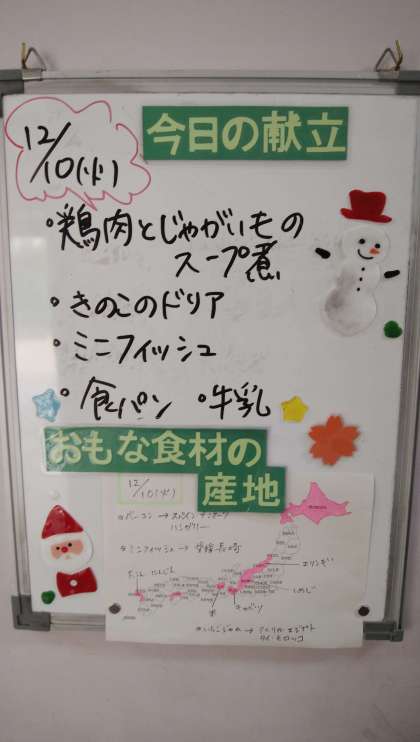 今日の献立
12/10(火)
・鶏肉とじゃがいもの
スープ煮
・きのこのドリア
・ミニフィッシュ
・食パン ・牛乳
おもな食材の
産地
12/10(火)
ベーコン→スペイン デンマーク
ハンガリー
ミニフィッシュ→愛媛 長崎
にんじん
エリンギ
しめじ
キャベツ
米
いちごジャム→アメリカ エジプト
タイ モロッコ